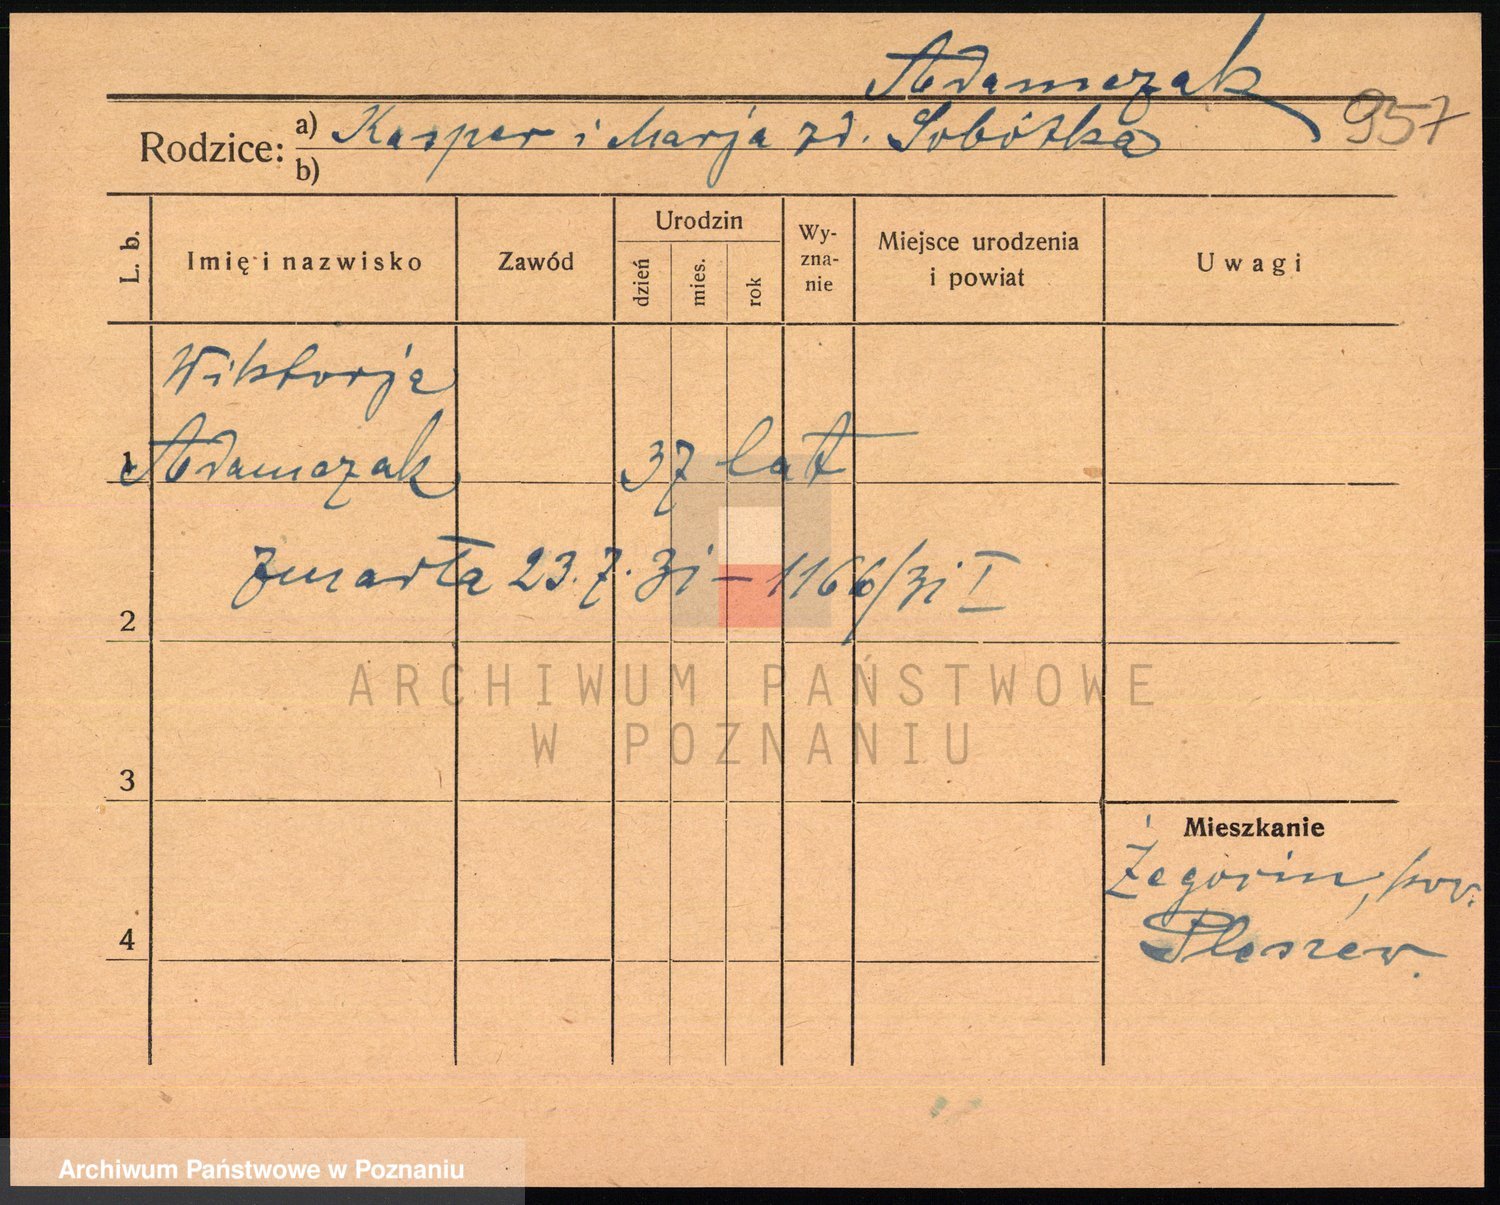 Adamczak
957
Rodzice: a) Kasper i Marja zd. Sobótka
b)
L. b.
Imię i nazwisko
Zawód
Urodzin
dzień
mies.
rok
Wy-
zna-
nie
Miejsce urodzenia
i powiat
Uwagi
Wiktorja
1 Adamczak 37 lat
zmarła 23.7.31 – 1166/31 I
2
3
4
Mieszkanie
pow.
Pleszew.
ARCHIWUM PAŃSTWOWE
W POZNANIU
Archiwum Państwowe w Poznaniu